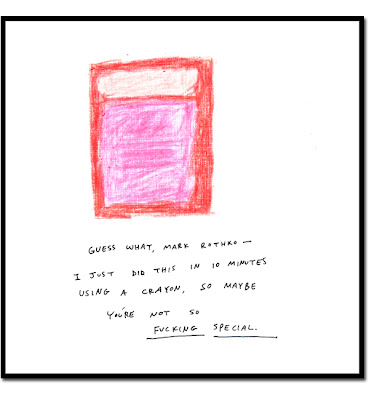 GUESS WHAT, MARK ROTHKO —
I JUST DID THIS IN 10 MINUTES
USING A CRAYON, SO MAYBE
YOU'RE NOT SO
FUCKING SPECIAL.